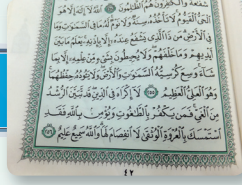 شَفَٰعَةٌ وَٱلْكَٰفِرُونَ هُمُ ٱلظَّٰلِمُونَ ٢٥٤ ٱللَّهُ لَآ إِلَٰهَ إِلَّا هُوَ
ٱلْحَىُّ ٱلْقَيُّومُ لَا تَأْخُذُهُۥ سِنَةٌ وَلَا نَوْمٌ لَّهُۥ مَا فِى ٱلسَّمَٰوَٰتِ وَمَا
فِى ٱلْأَرْضِ مَن ذَا ٱلَّذِى يَشْفَعُ عِندَهُۥٓ إِلَّا بِإِذْنِهِۦ يَعْلَمُ مَا بَيْنَ
أَيْدِيهِمْ وَمَا خَلْفَهُمْ وَلَا يُحِيطُونَ بِشَىْءٍ مِّنْ عِلْمِهِۦٓ إِلَّا بِمَا
شَآءَ وَسِعَ كُرْسِيُّهُ ٱلسَّمَٰوَٰتِ وَٱلْأَرْضَ وَلَا يَـُٔودُهُۥ حِفْظُهُمَا
وَهُوَ ٱلْعَلِىُّ ٱلْعَظِيمُ ٢٥٥ لَآ إِكْرَاهَ فِى ٱلدِّينِ قَد تَّبَيَّنَ ٱلرُّشْدُ
مِنَ ٱلْغَىِّ فَمَن يَكْفُرْ بِٱلطَّٰغُوتِ وَيُؤْمِنۢ بِٱللَّهِ فَقَدِ
ٱسْتَمْسَكَ بِٱلْعُرْوَةِ ٱلْوُثْقَىٰ لَا ٱنفِصَامَ لَهَا وَٱللَّهُ سَمِيعٌ عَلِيمٌ ٢٥٦
٤٢